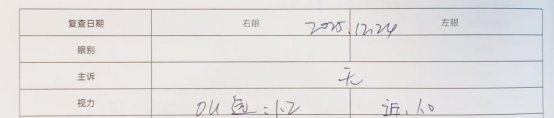 复查日期 右眼 2025.12.24 左眼
眼别
主诉 无
视力 OU 远:1.2 近:1.0